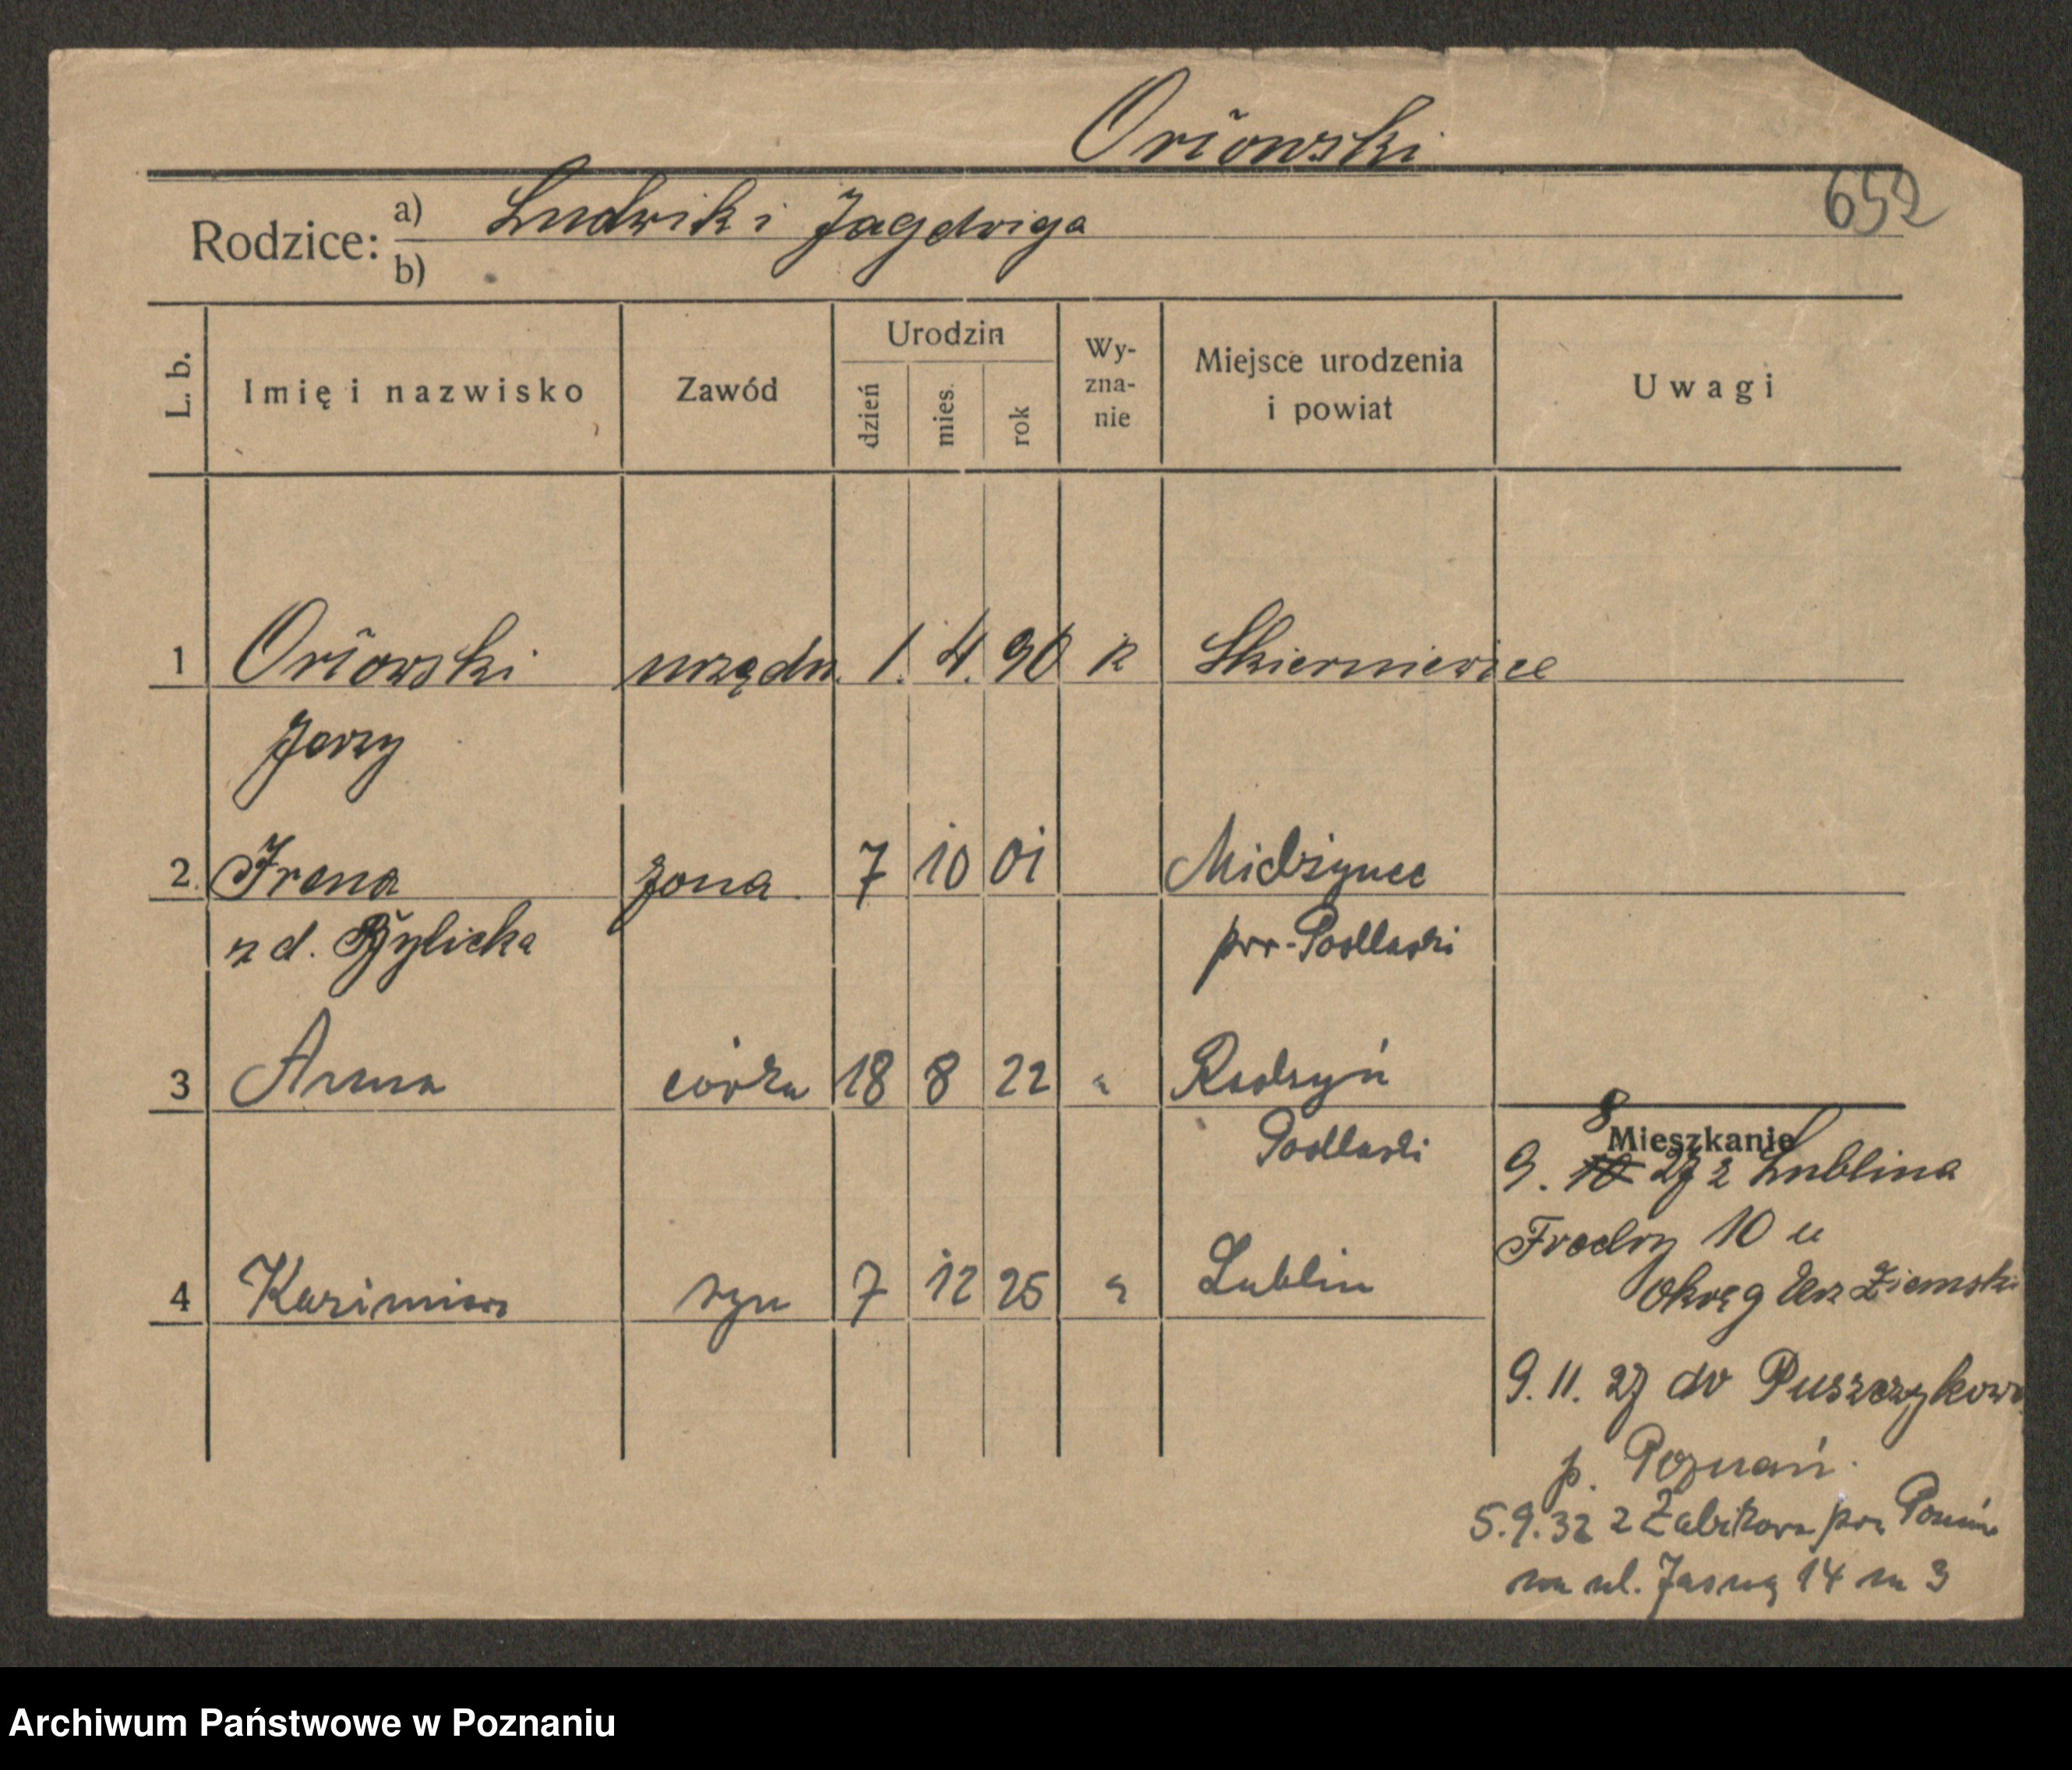 Oriowski
652
Rodzice: a) Ludwik i Jagdwiga
b)
L. b. Imię i nazwisko Zawód Urodzin dzień mies. rok Wy-zna-nie Miejsce urodzenia i powiat Uwagi
1 Oriowski urzędn. 1. 4. 90 k Skierniewice
Jerzy
2. Irena żona 7 10 01
z d. Podlaski
3 Anna córka 18 8 22 " Radzyń
Podlaski
Mieszkanie
8
9. 10 27 z Lublina
Fredry 10 u
Okręg Urz Ziemski
4 Kazimierz syn 7 12 25 " Lublin
9. 11. 27 do Puszczykowo
p. Poznań.
5.9.32 z Żabikowa pow Poznań
na ul. Jasną 14 m 3
Archiwum Państwowe w Poznaniu